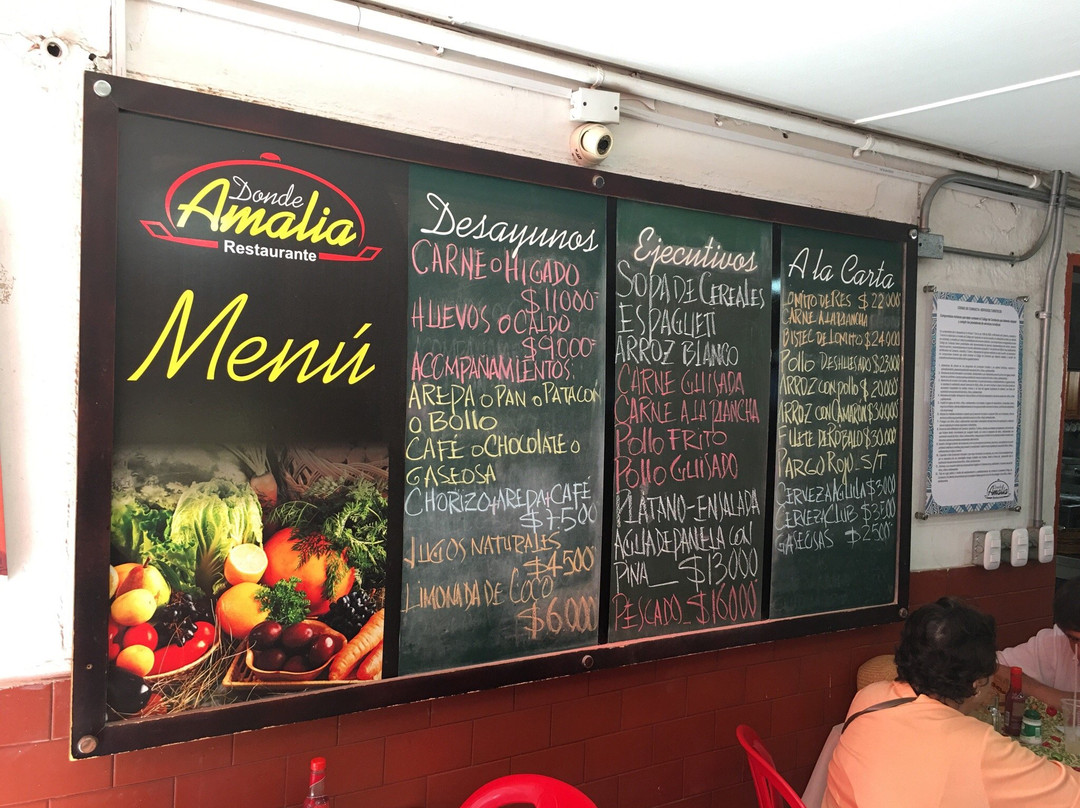 Donde
Amalia
Restaurante
Menú
Desayunos
CARNE o HIGADO
$11000=
HUEVOS o CALDO
$9000=
ACOMPAÑAMIENTOS:
AREPA o PAN o PATACON
o BOLLO
CAFÉ o CHOCOLATE o
GASEOSA
CHORIZO+AREPA+CAFÉ
$7.500
JUGOS NATURALES
$4500
LIMONADA DE COCO
$6000
Ejecutivos
SOPA DE CEREALES
ESPAGUETI
ARROZ BLANCO
CARNE GUISADA
CARNE A LA PLANCHA
POLLO FRITO
POLLO GUISADO
PLATANO-ENSALADA
AGUA DE PANELA CON
PIÑA_ $13000
PESCADO_ $16000
A la Carta
LOMITO DE RES $22000
CARNE A LA PLANCHA
BISTEC DE LOMITO $24000
POLLO DESHUESADO $23000
ARROZ CON POLLO $20000
ARROZ CON CAMARON $30000
FILETE DE ROBALO $30.000
PARGO ROJO_ S/T
CERVEZA AGUILA $3000
CERVEZA CLUB $3500
GASEOSAS $2500
Amalia